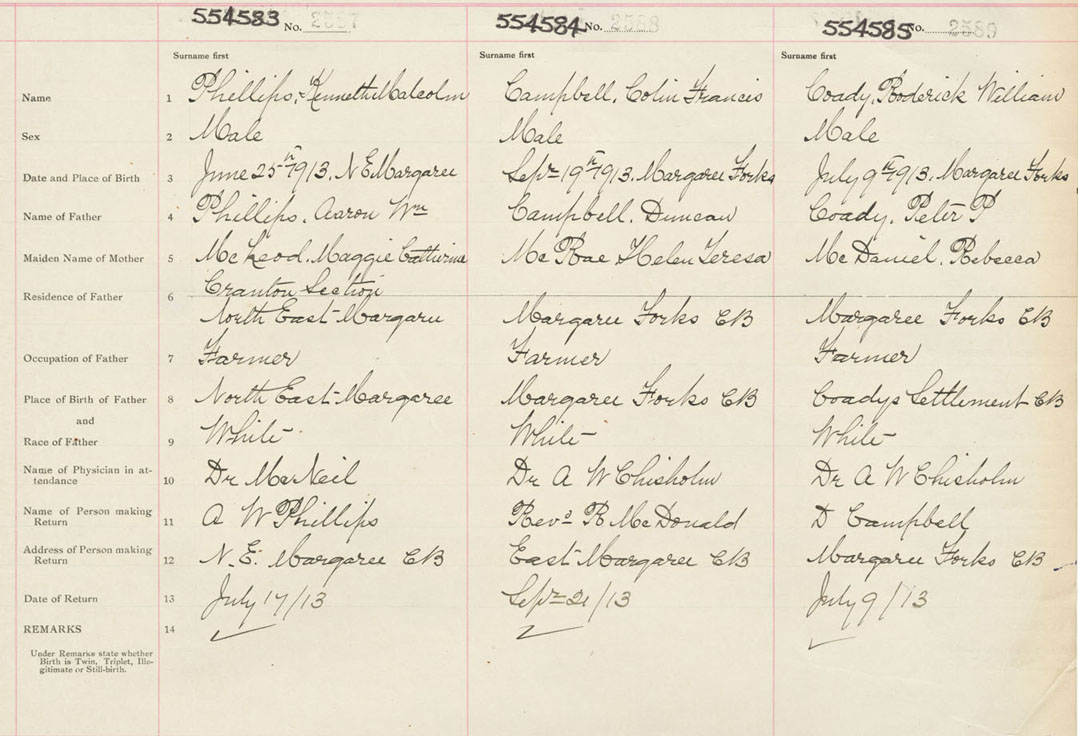 554583 No. 2587 554584 No. 2588 554585 No. 2589
Surname first Surname first Surname first
Name 1 Phillips, Kenneth Malcolm Campbell, Colin Francis Coady, Roderick William
Sex 2 Male Male Male
Date and Place of Birth 3 June 25th 1913, N E Margaree Sepr 19th 1913. Margaree Forks July 9th 1913, Margaree Forks
Name of Father 4 Phillips, Aaron Wm Campbell, Duncan Coady, Peter P
Maiden Name of Mother 5 McLeod, Maggie Catherine McRae Helen Teresa McDaniel, Rebecca
Cranton Section
Residence of Father 6 North East Margaree Margaree Forks CB Margaree Forks CB
Occupation of Father 7 Farmer Farmer Farmer
Place of Birth of Father 8 North East Margaree Margaree Forks CB Coadys Settlement CB
and
Race of Father 9 White White White
Name of Physician in at-
tendance 10 Dr McNeil Dr A W Chisholm Dr A W Chisholm
Name of Person making
Return 11 A W Phillips Revd R McDonald D Campbell
Address of Person making
Return 12 N.E. Margaree CB East Margaree CB Margaree Forks CB
Date of Return 13 July 17/13 Sepr 21/13 July 9/13
REMARKS 14
Under Remarks state whether
Birth is Twin, Triplet, Ille-
gitimate or Still-birth.